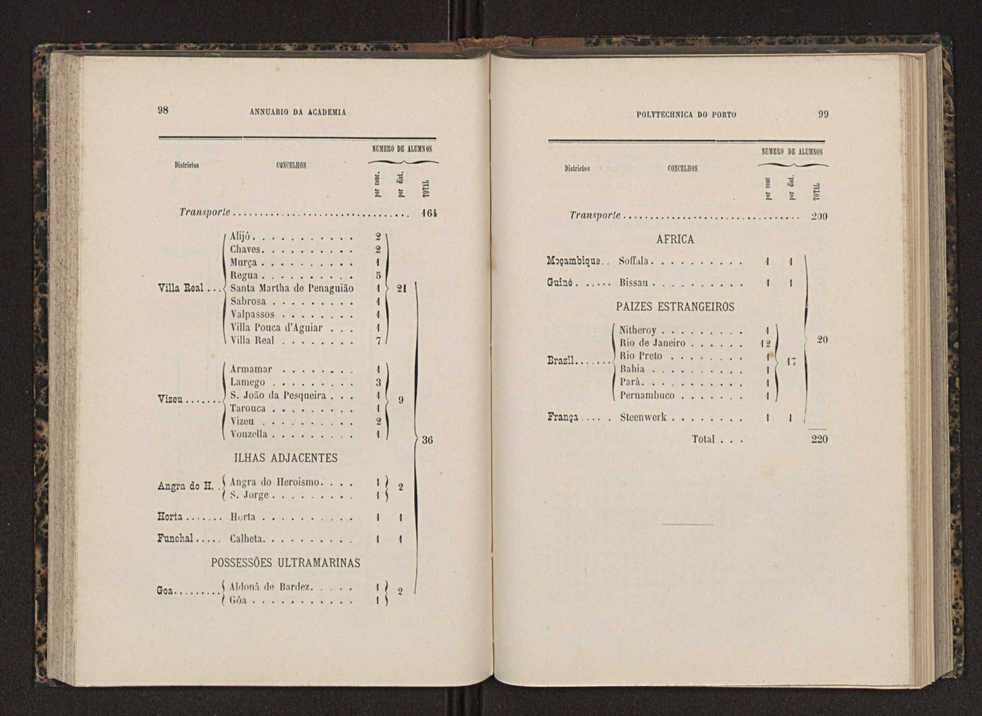 98
ANNUARIO DA ACADEMIA
NUMERO DE ALUMNOS
Districtos CONCELHOS por conc. por dist. TOTAL
Transporte 164
Alijó 2
Chaves 2
Murça 1
Regua 5
Villa Real Santa Martha de Penaguião 1 21
Sabrosa 1
Valpassos 1
Villa Pouca d'Aguiar 1
Villa Real 7
Armamar 1
Lamego 3
S. João da Pesqueira 1
Vizeu 9
Tarouca 1
Vizeu 2
Vouzella 1
36
ILHAS ADJACENTES
Angra do Heroismo 1
Angra do H. 2
S. Jorge 1
Horta Horta 1 1
Funchal Calheta 1 1
POSSESSÕES ULTRAMARINAS
Aldoná de Bardez 1
Goa 2
Gôa 1
POLYTECHNICA DO PORTO
99
NUMERO DE ALUMNOS
Districtos CONCELHOS por conc por dist. TOTAL
Transporte 200
AFRICA
Moçambique Soffala 1 1
Guiné Bissau 1 1
PAIZES ESTRANGEIROS
Nitheroy 1
Rio de Janeiro 12
20
Rio Preto 1
Brazil 17
Bahia 1
Pará 1
Pernambuco 1
França Steenwerk 1 1
Total 220